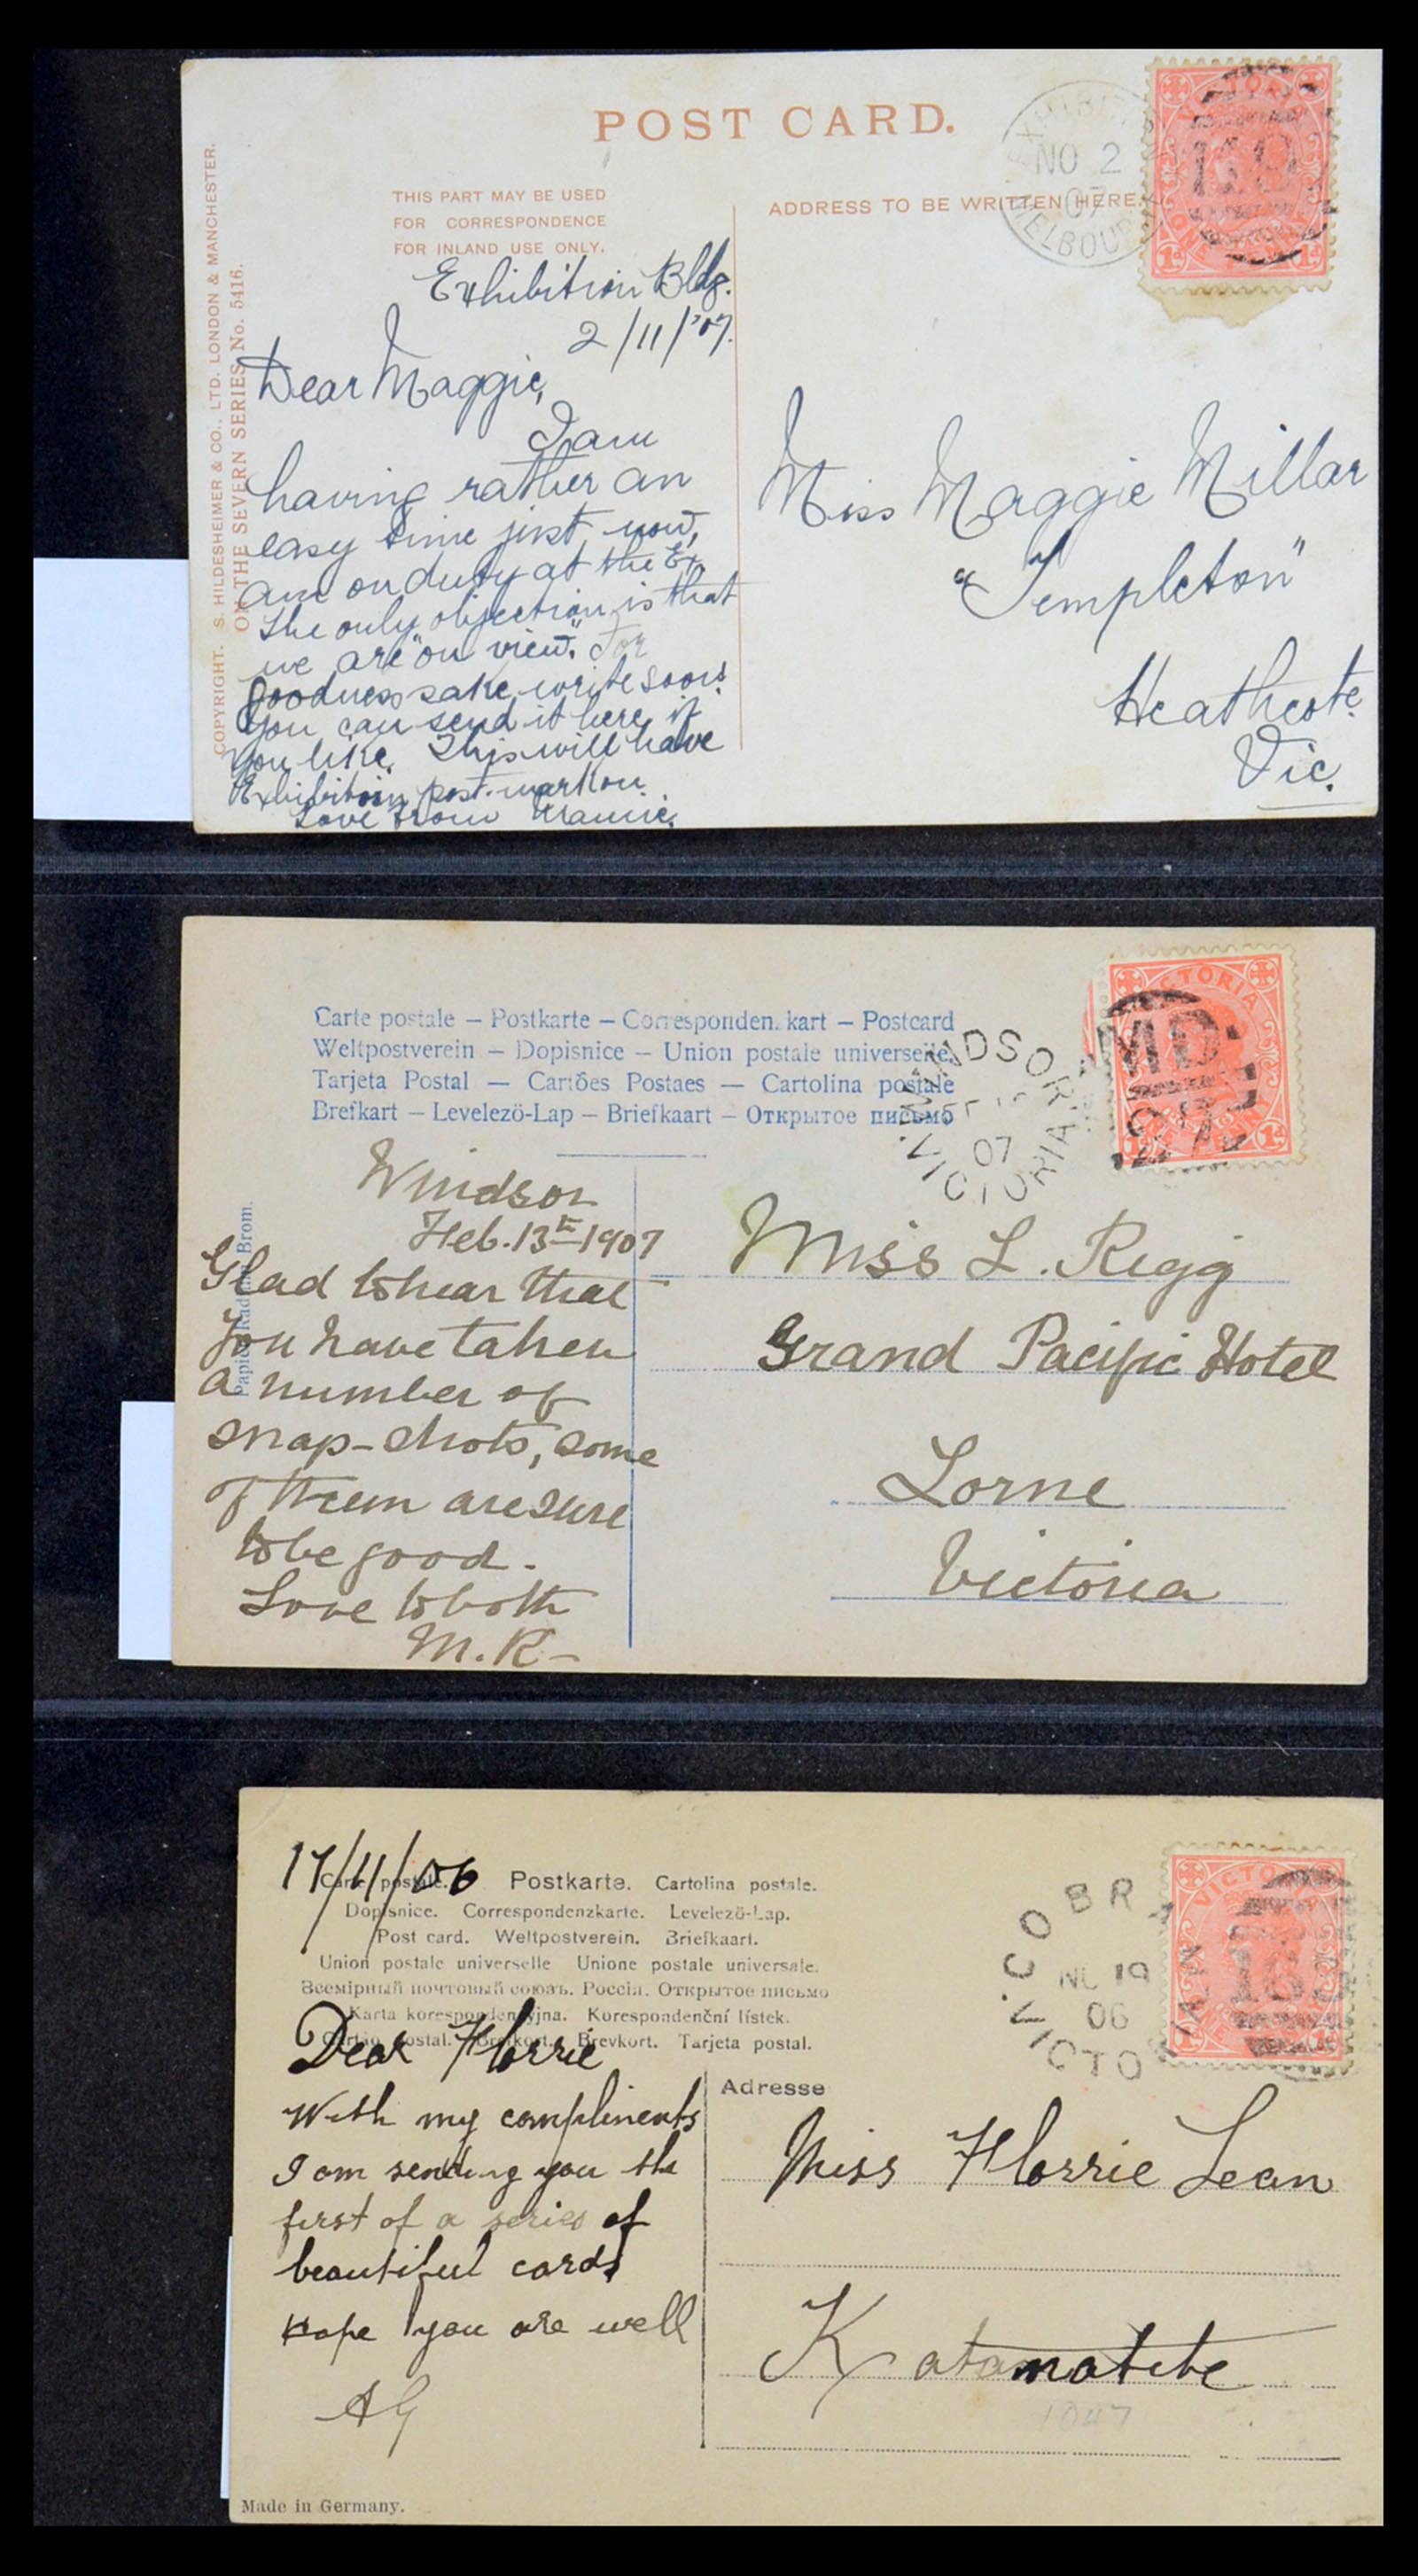 POST CARD.
THIS PART MAY BE USED
FOR CORRESPONDENCE
FOR INLAND USE ONLY.
ADDRESS TO BE WRITTEN HERE.
NO 2
07
COPYRIGHT. S. HILDESHEIMER & CO., LTD. LONDON & MANCHESTER.
ON THE SEVERN SERIES No. 5416.
Exhibition Bldg.
2/11/'07.
Dear Maggie,
I am
having rather an
easy time just now,
am on duty at the Ex.
The only objection is that
we are "on view". For
goodness sake write soon!
You can send it here if
you like. This will have
Exhibition post-mark on.
Love from
Miss Maggie Millar
"Templeton"
Heathcote
Vic.
Carte postale – Postkarte – Corresponden. kart – Postcard
Weltpostverein – Dopisnice – Union postale universelle.
Tarjeta Postal — Cartões Postaes — Cartolina postale
Brefkart – Levelezö-Lap – Briefkaart – Открытое письмо
WINDSOR
07
VICTORIA
VICTORIA
MD
Brom.
Windsor
Feb. 13th 1907
Glad to hear that
you have taken
a number of
snap-shots, some
of them are sure
to be good.
Love to both
M.R-
Miss L. Rigg
Grand Pacific Hotel
Lorne
Victoria
17/11/06
Carte postale. Postkarte. Cartolina postale.
Dopisnice. Correspondenzkarte. Levelezö-Lap.
Post card. Weltpostverein. Briefkaart.
Union postale universelle Unione postale universale.
Всемірный почтовый союзъ. Россія. Открытое письмо
Karta korespondencyjna. Korespondenční lístek.
postal. Brevkort. Tarjeta postal.
19
06
Dear Florrie
With my compliments
I am sending you the
first of a series of
beautiful cards
Hope you are well
AG
Adresse
Miss Florrie Lean
Katamatite
1047
Made in Germany.